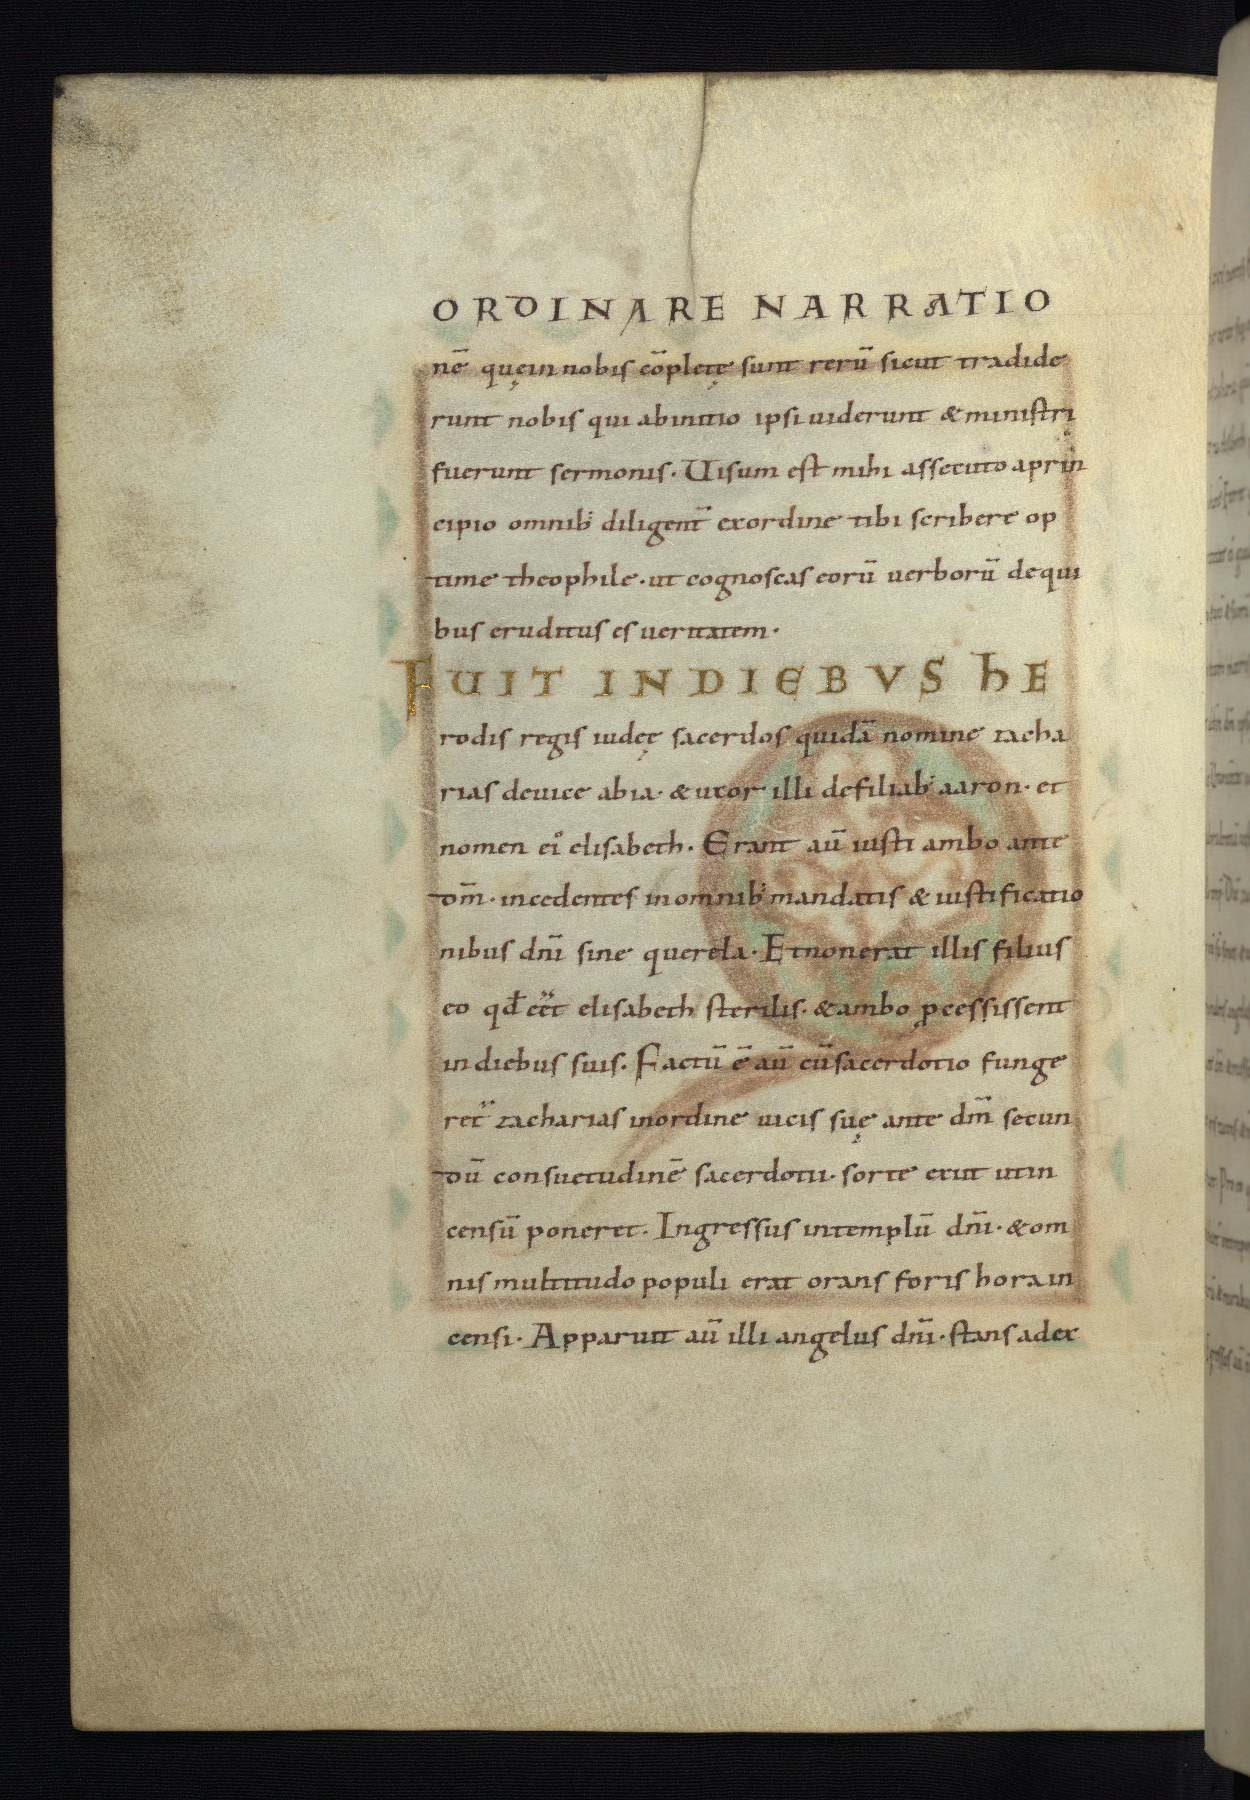 ORDINARE NARRATIO
nē quęin nobis cōpletę sunt rerū sicut tradide
runt nobis qui abinitio ipsi uiderunt &ministri
fuerunt sermonis. Uisum est mihi assecuto aprin
cipio omnib; diligent̄ exordine tibi scribere op
time theophile. ut cognoscas eorū uerborū dequi
bus eruditus es ueritatem.
FUIT INDIEBVS hE
rodis regis iudęę sacerdos quidā nomine zacha
rias deuice abia. & uxor illi defiliab; aaron. et
nomen ei' elisabeth. Erant aū iusti ambo ante
dm̄. incedentes inomnib; mandatis & iustificatio
nibus dnī sine querela. Etnonerat illis filius
eo qđ eēt elisabeth sterilis. &ambo ꝓcessissent
indiebus suis. Factū ē aū cūsacerdotio funge
ret᷑ zacharias inordine uicis suę ante dm̄ secun
dū consuetudinē sacerdotii. sorte exiit utin
censū poneret. Ingressus intemplū dnī. &om
nis multitudo populi erat orans foris horain
censi. Apparuit aū illi angelus dnī. stans adex